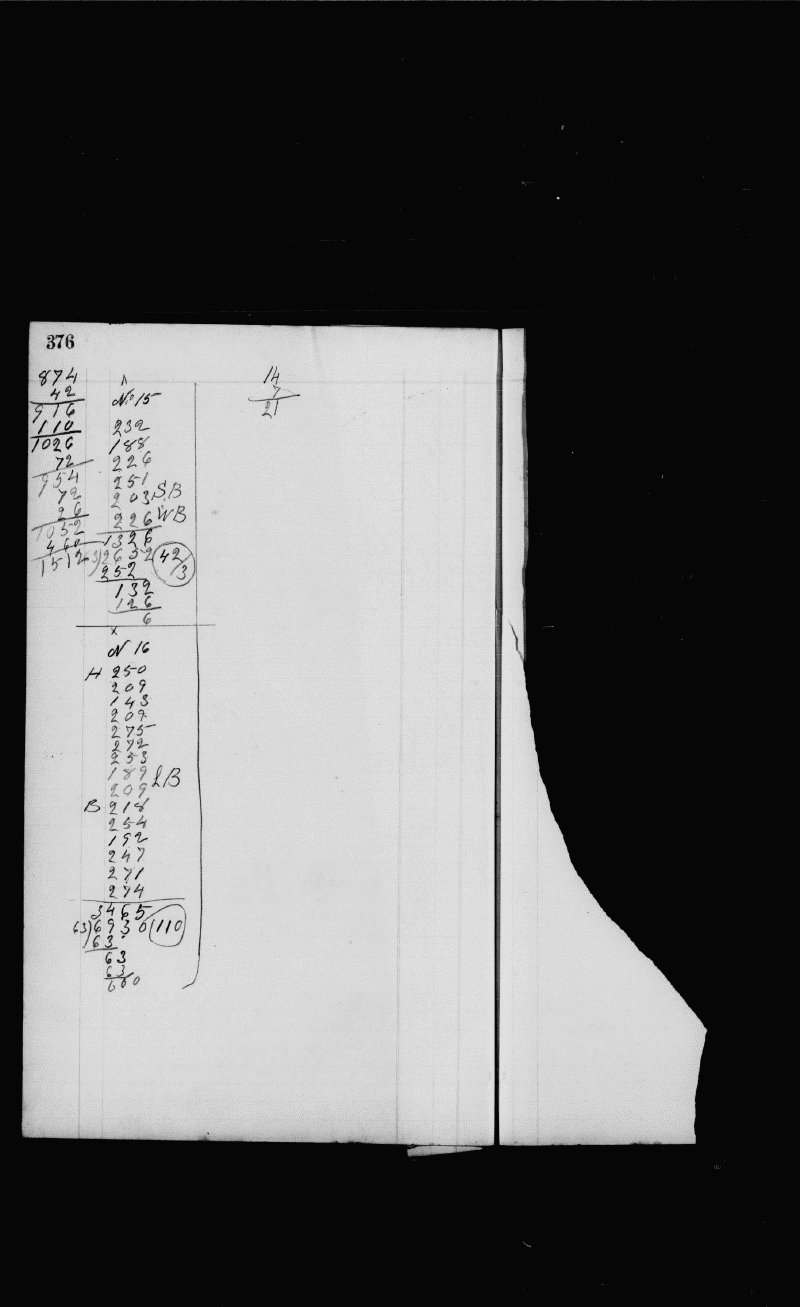 376
874
42
916
110
1026
72
954
72
26
1052
460
1512
No 15
232
188
226
251
203 S.B
226 WB
1326
63)2652(42/3
252
132
126
6
x
N 16
H 250
209
143
209
275
272
253
189 LB
209
B 218
254
192
247
271
274
3465
63)6930(110
63
63
63
000
14
7
21